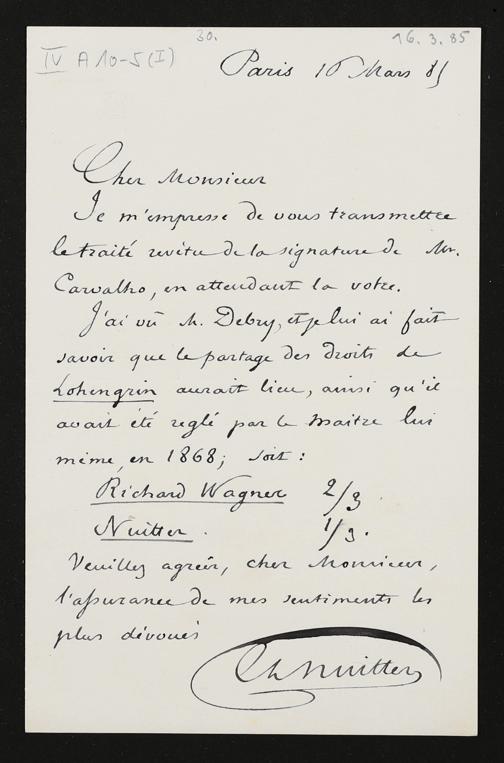 30.
16. 3. 85
IV A 10-5 (I)
Paris 16 Mars 85
Cher Monsieur
Je m'empresse de vous transmettre
le traité revêtu de la signature de Mr.
Carvalho, en attendant la votre.
J'ai vu M. Debry, et je lui ai fait
savoir que le partage des droits de
Lohengrin aurait lieu, ainsi qu'il
avait été reglé par le maitre lui
même, en 1868; soit :
Richard Wagner 2/3
Nuitter. 1/3.
Veuillez agréer, cher Monsieur,
l'assurance de mes sentiments les
plus dévoués
Ch Nuitter